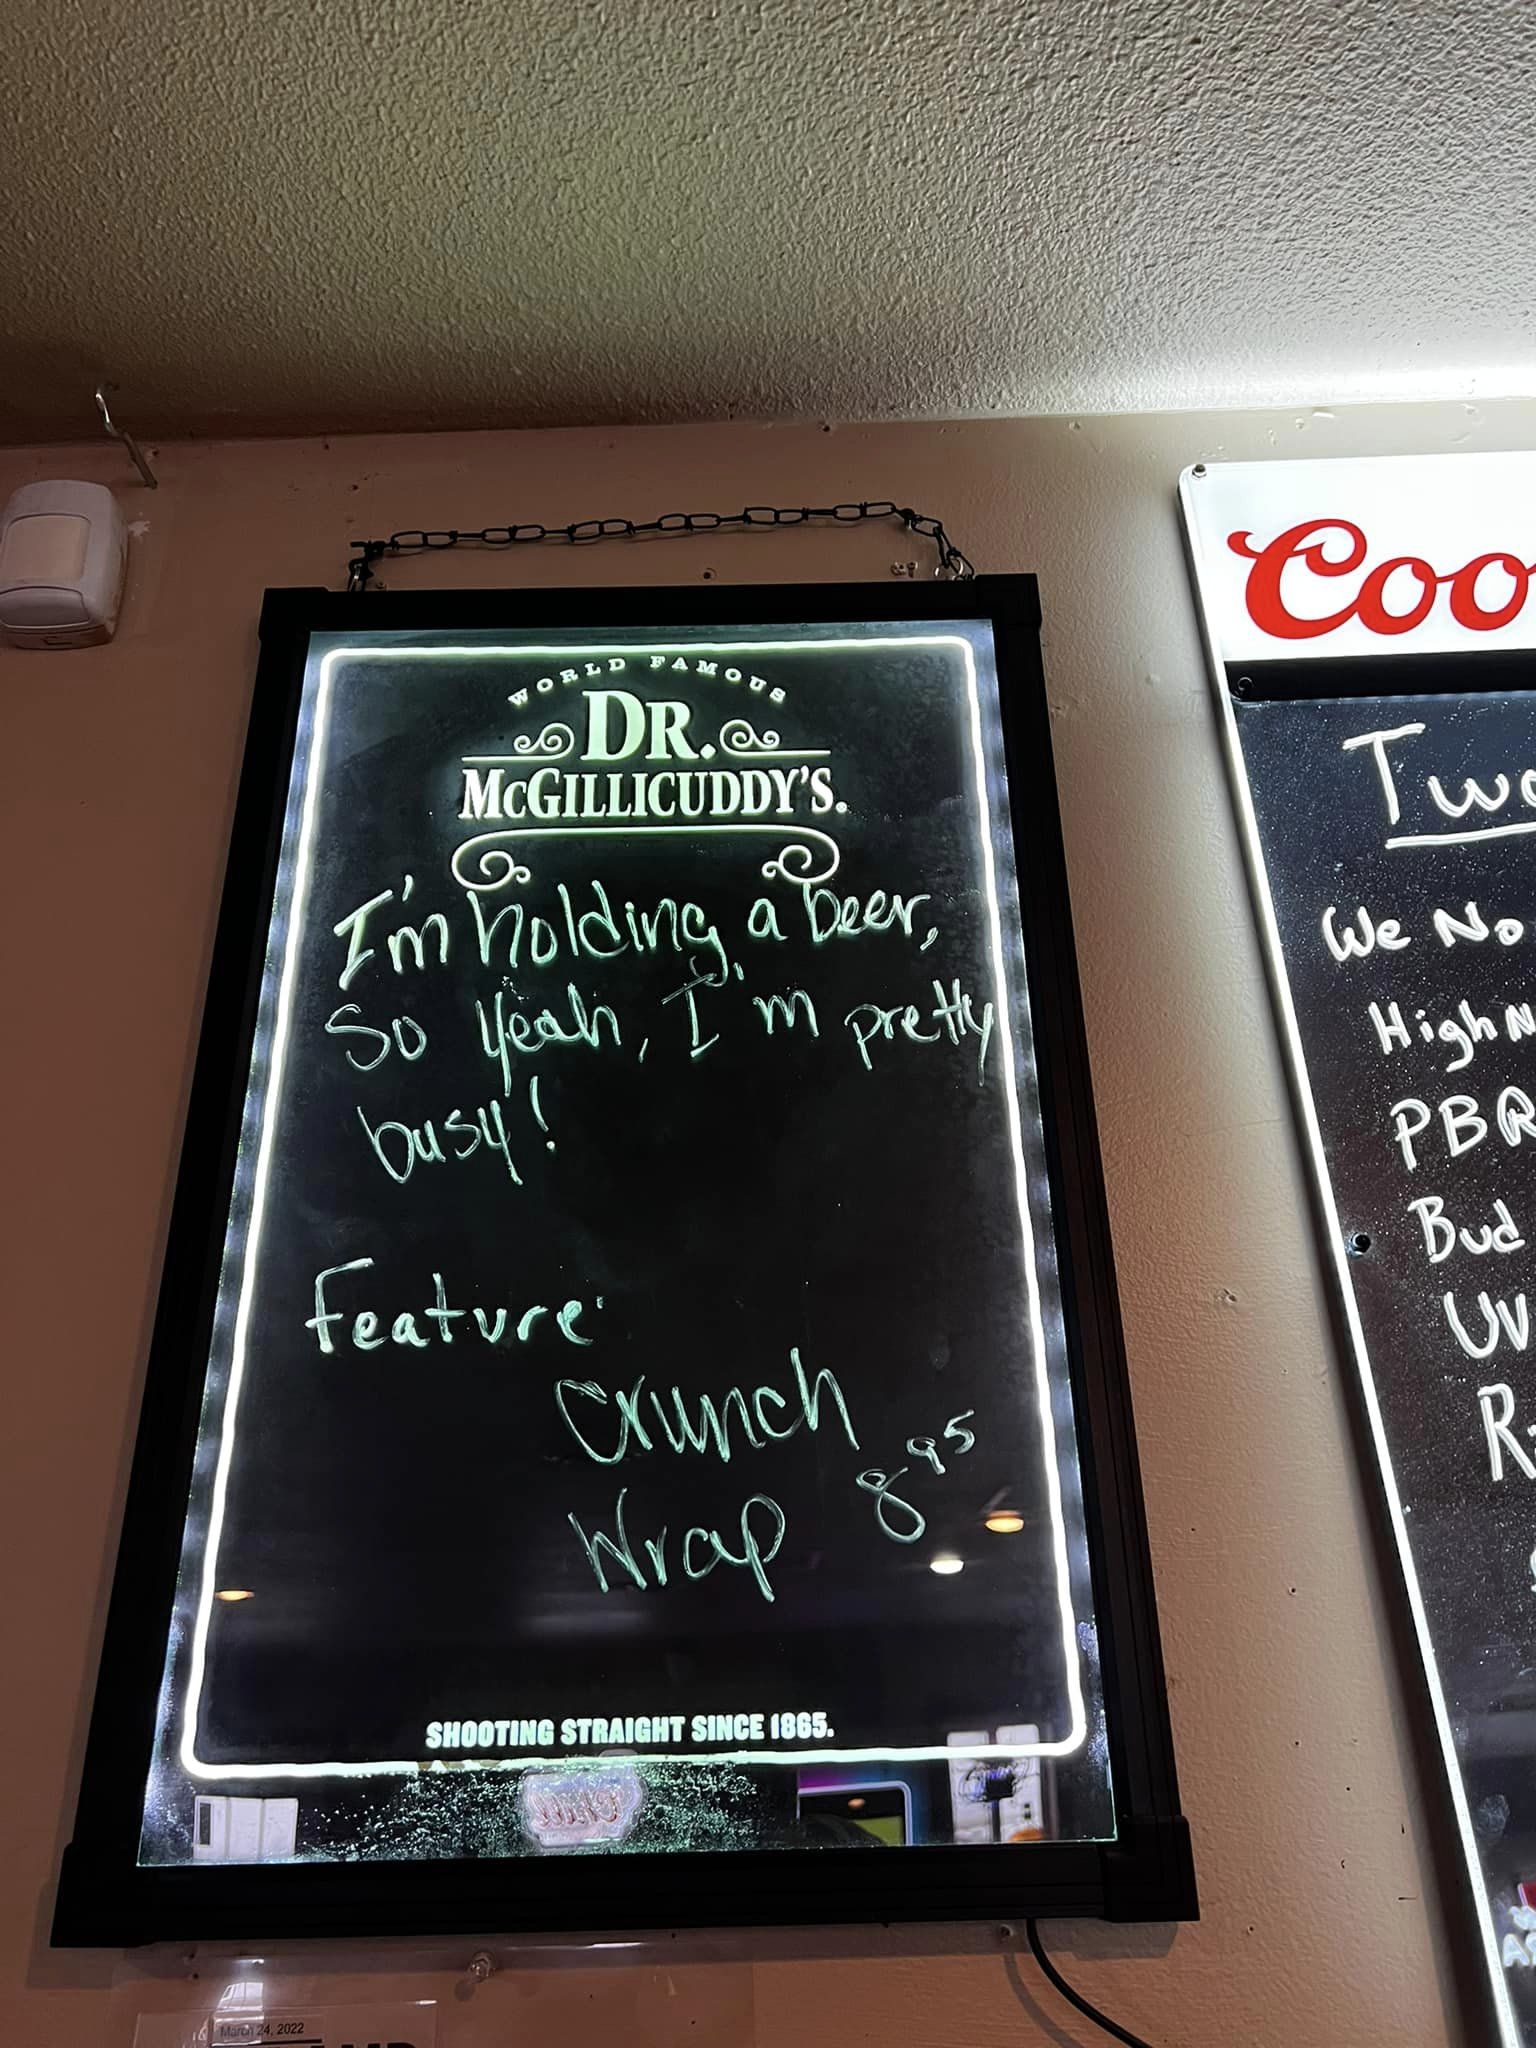 WORLD FAMOUS
DR.
McGILLICUDDY'S.
I'm holding a beer,
So yeah, I'm pretty
busy!
Feature:
Crunch
Wrap 8 95
SHOOTING STRAIGHT SINCE 1865.
March 24, 2022
Coo
Two
We No
High
PBR
Bud
UV